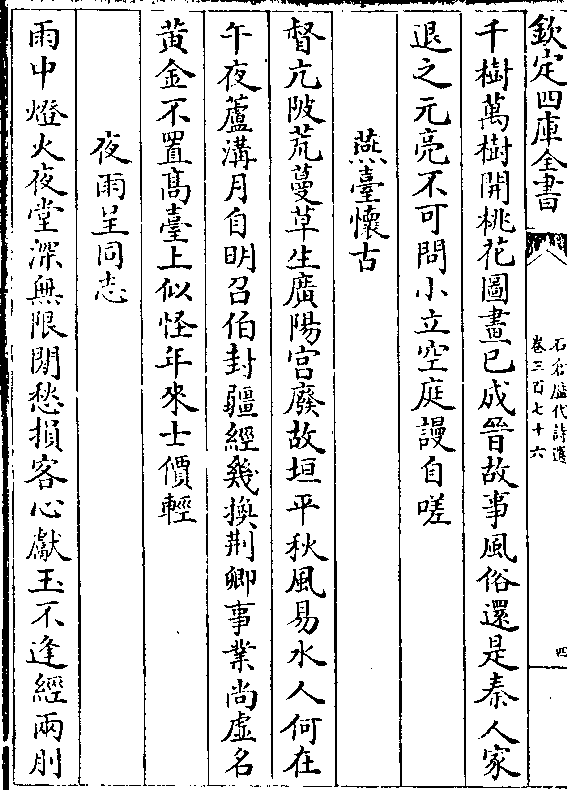 欽定四庫全書
石倉歷代詩選
卷三百七十六
四
千樹萬樹開桃花圖畫已成晉故事風俗還是秦人家
退之元亮不可問小立空庭謾自嗟
燕臺懷古
督亢陂荒蔓草生廣陽宫廢故垣平秋風易水人何在
午夜蘆溝月自明召伯封疆經幾換荆卿事業尚虚名
黄金不置髙臺上似怪年來士價輕
夜雨呈同志
雨中燈火夜堂深無限閒愁損客心獻玉不逢經兩刖